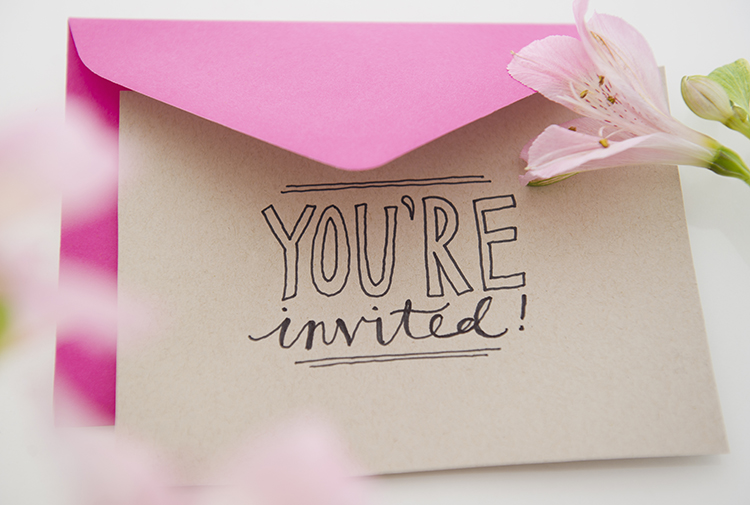 YOU'RE
invited!